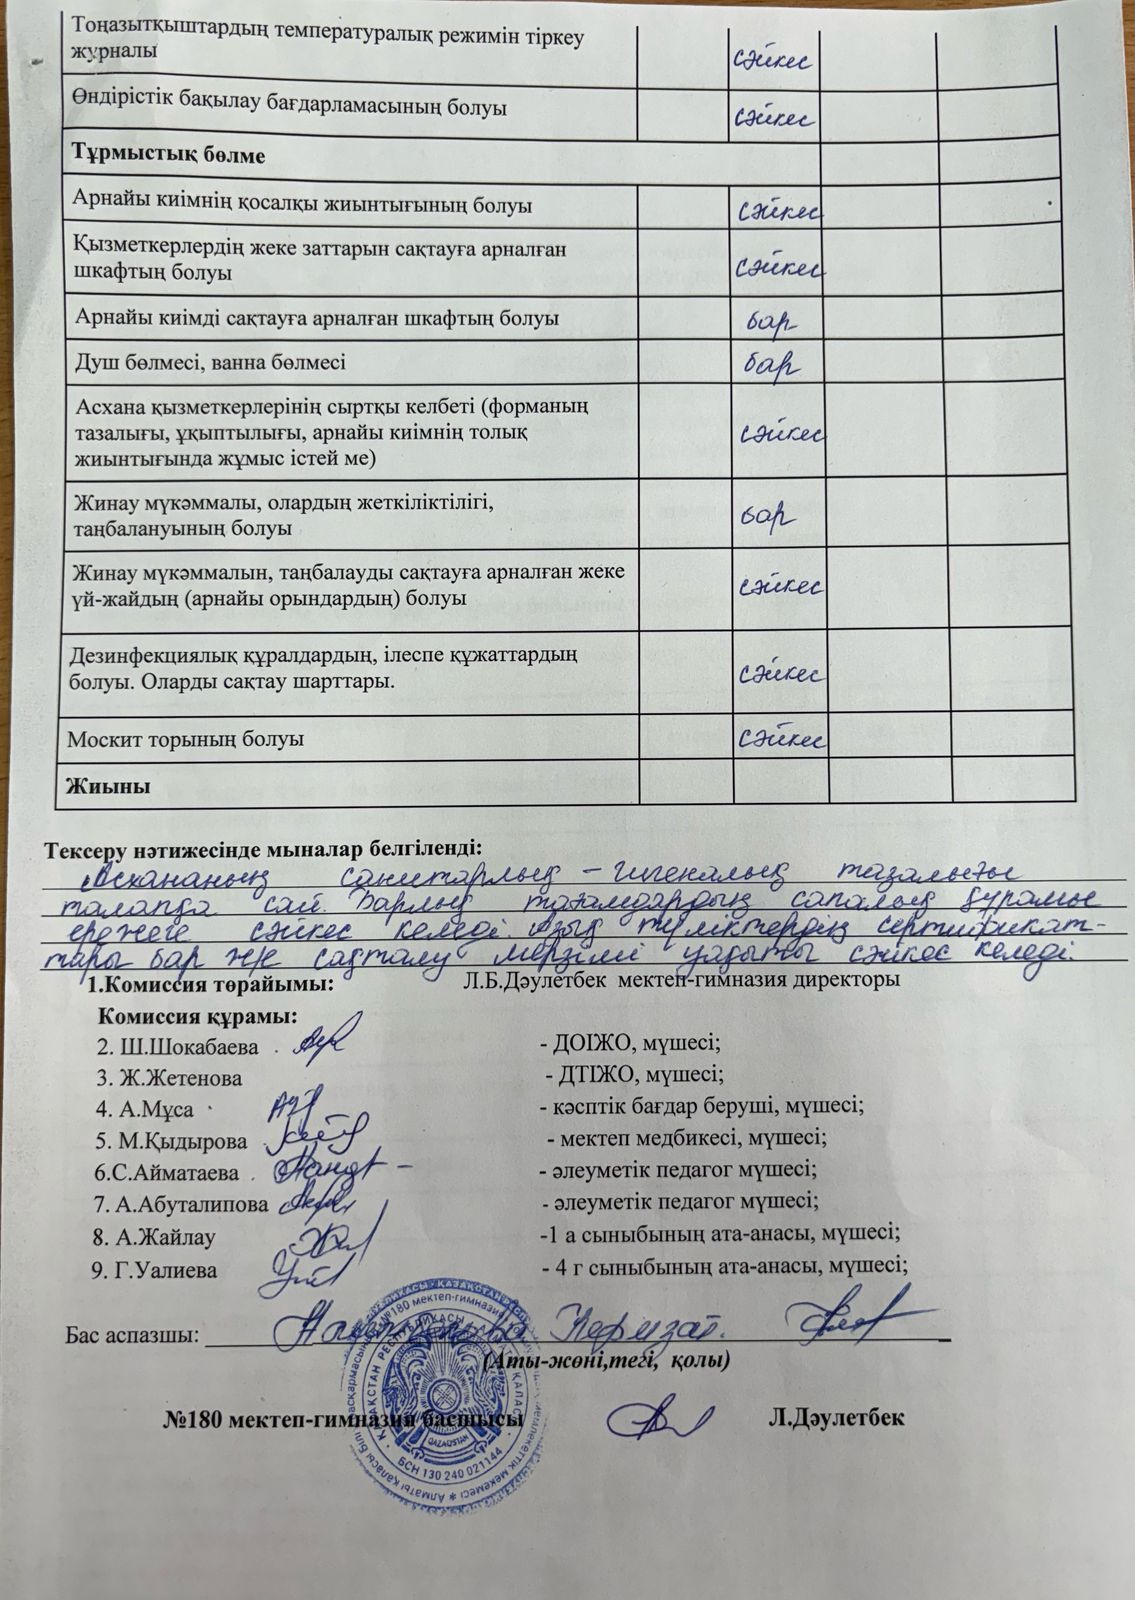 Тоңазытқыштардың температуралық режимін тіркеу
журналы сәйкес
Өндірістік бақылау бағдарламасының болуы сәйкес
Тұрмыстық бөлме
Арнайы киімнің қосалқы жиынтығының болуы сәйкес
Қызметкерлердің жеке заттарын сақтауға арналған
шкафтың болуы сәйкес
Арнайы киімді сақтауға арналған шкафтың болуы бар
Душ бөлмесі, ванна бөлмесі бар
Асхана қызметкерлерінің сыртқы келбеті (форманың
тазалығы, ұқыптылығы, арнайы киімнің толық сәйкес
жиынтығында жұмыс істей ме)
Жинау мүкәммалы, олардың жеткіліктілігі,
таңбалануының болуы бар
Жинау мүкәммалын, таңбалауды сақтауға арналған жеке
үй-жайдың (арнайы орындардың) болуы сәйкес
Дезинфекциялық құралдардың, ілеспе құжаттардың
болуы. Оларды сақтау шарттары. сәйкес
Москит торының болуы сәйкес
Жиыны
Тексеру нәтижесінде мыналар белгіленді:
Асхананың санитарлық - гигеналық тазалығы
талапқа сай. Барлық тағамдардың сапалық құрамы
ережеге сәйкес келеді. Азық түліктердің сертификат-
тары бар және сақталу мерзімі уақыты сәйкес келеді.
1.Комиссия төрайымы: Л.Б.Дәулетбек мектеп-гимназия директоры
Комиссия құрамы:
2. Ш.Шокабаева - ДОІЖО, мүшесі;
3. Ж.Жетенова - ДТІЖО, мүшесі;
4. А.Мұса - кәсптік бағдар беруші, мүшесі;
5. М.Қыдырова - мектеп медбикесі, мүшесі;
6.С.Айматаева - әлеуметік педагог мүшесі;
7. А.Абуталипова - әлеуметік педагог мүшесі;
8. А.Жайлау -1 а сыныбының ата-анасы, мүшесі;
9. Г.Уалиева - 4 г сыныбының ата-анасы, мүшесі;
Бас аспазшы:
(Аты-жөні,тегі, қолы)
№180 мектеп-гимназия басшысы Л.Дәулетбек
ҚАЗАҚСТАН РЕСПУБЛИКАСЫ
QAZAQSTAN
БСН 130 240 021144